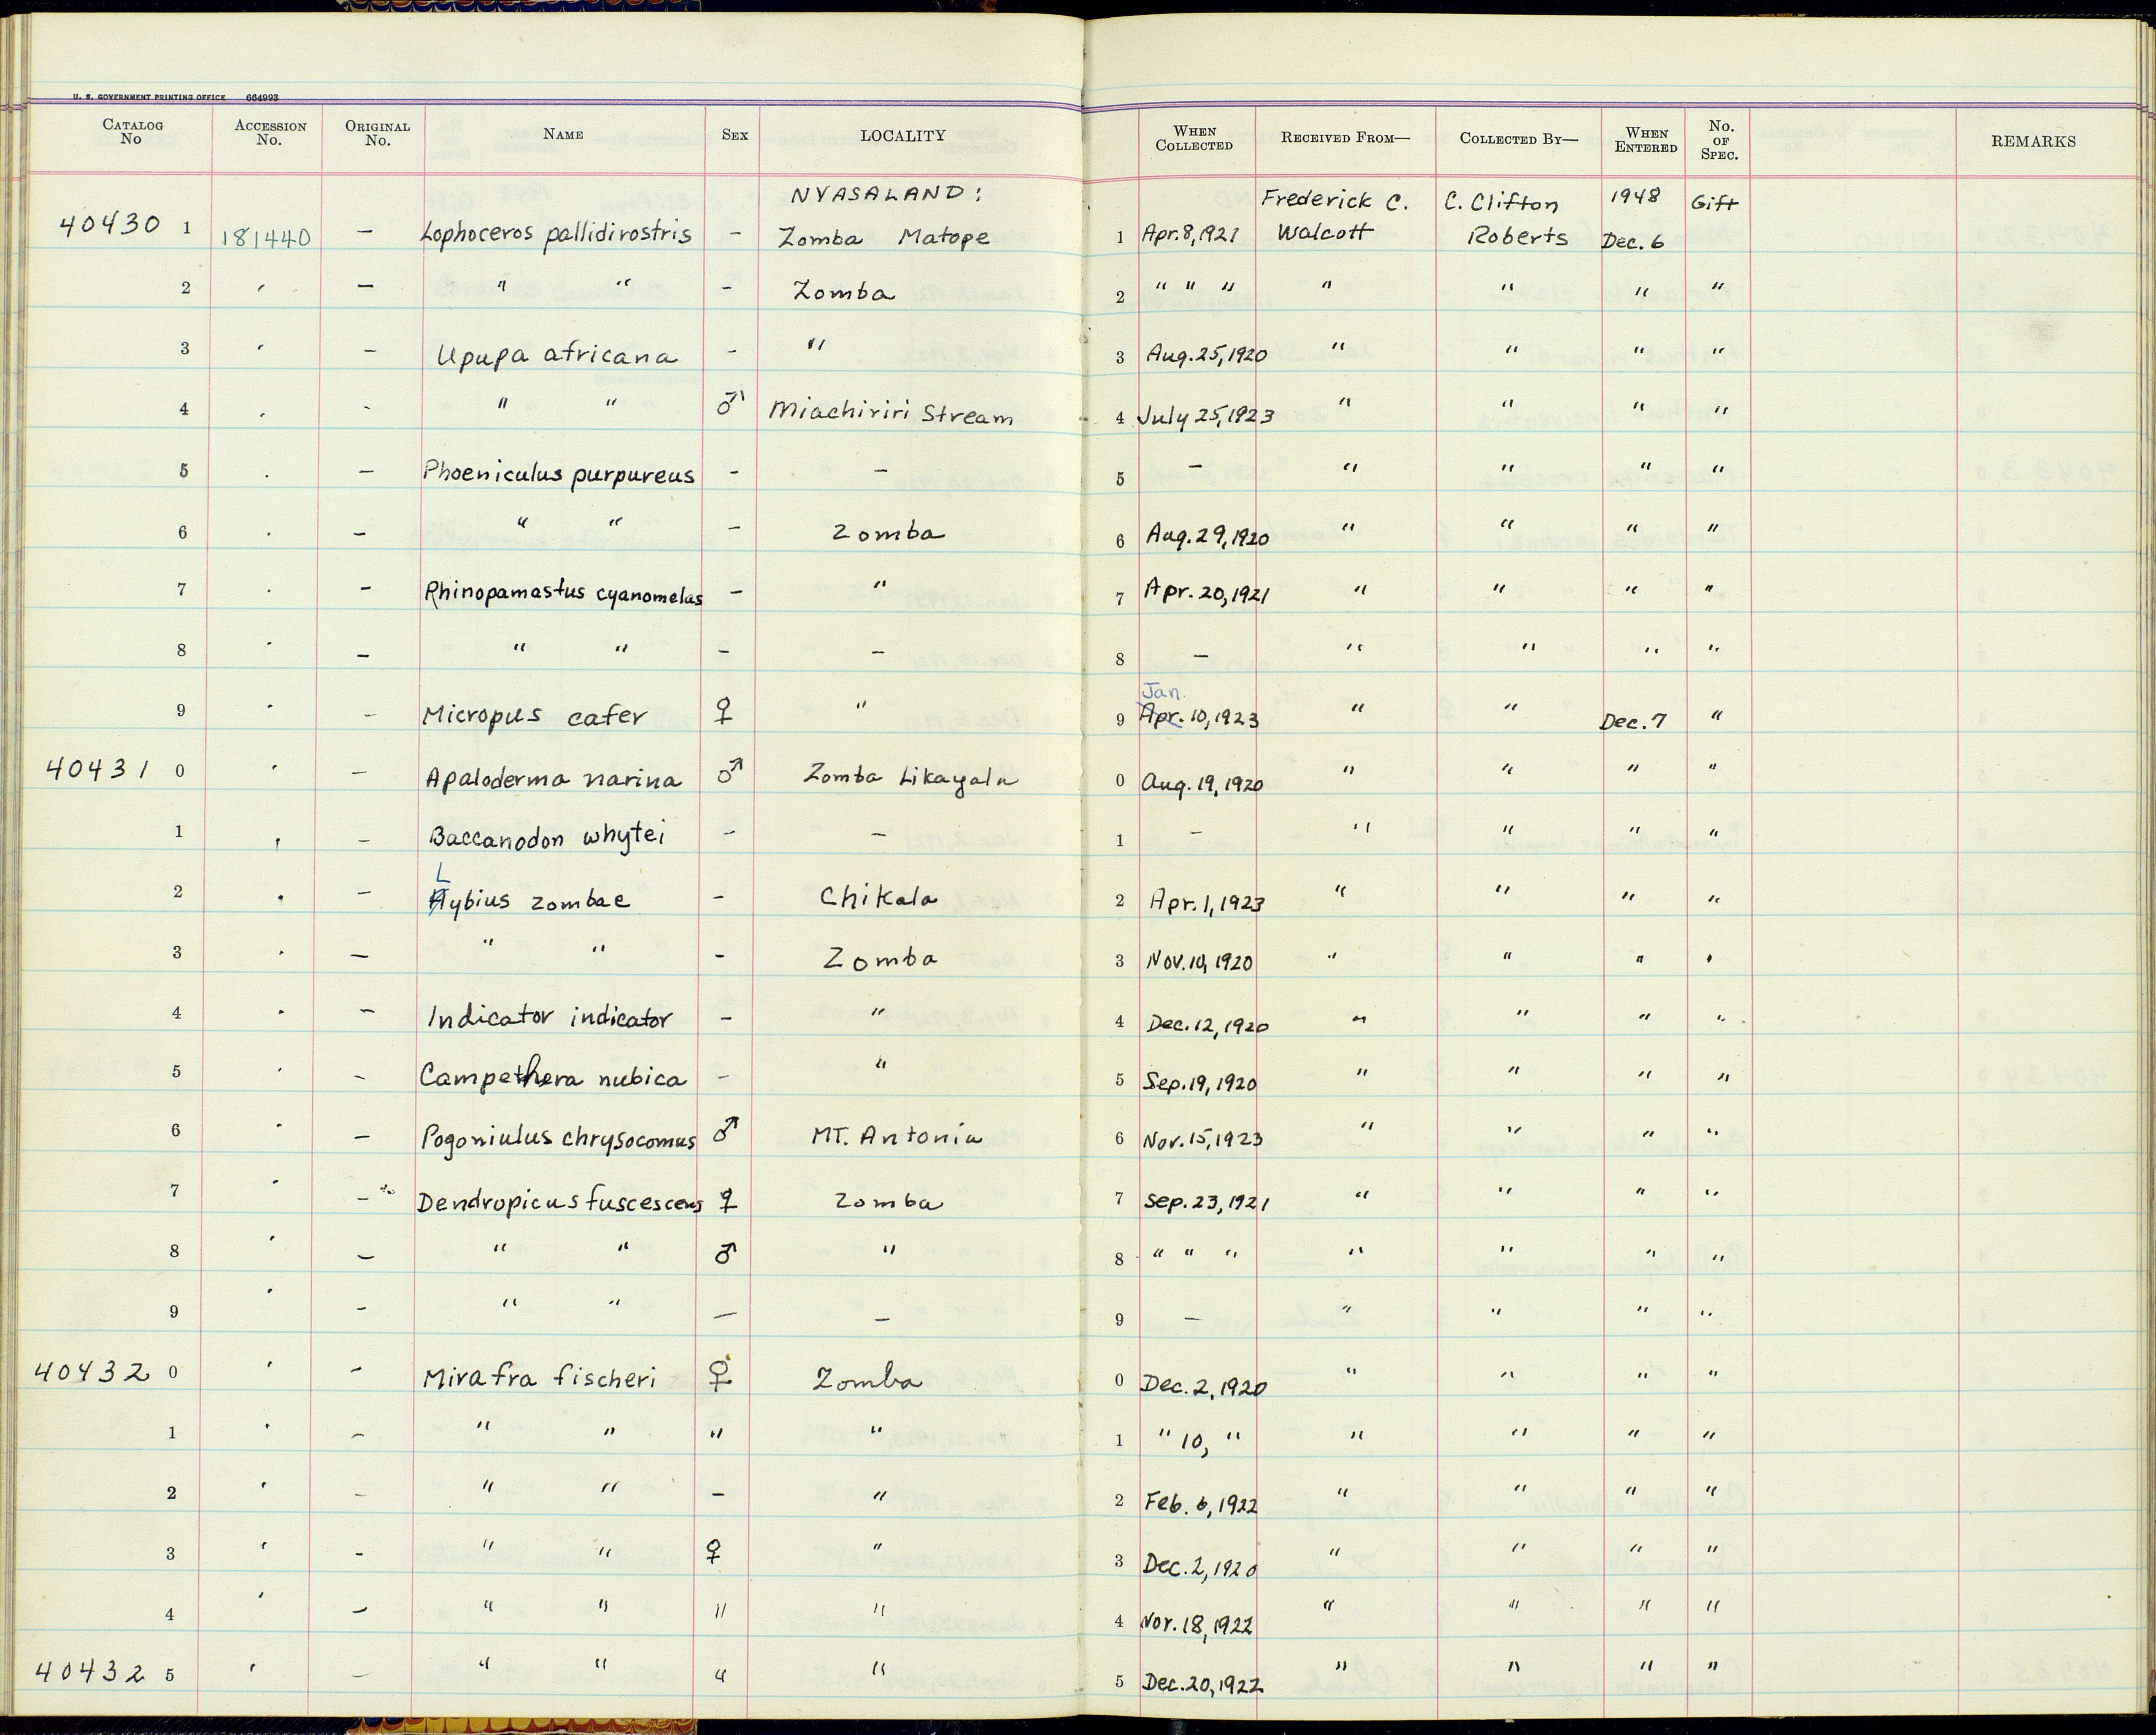 U. S. GOVERNMENT PRINTING OFFICE 664993
CATALOG No ACCESSION No. ORIGINAL No. NAME SEX LOCALITY WHEN COLLECTED RECEIVED FROM— COLLECTED BY— WHEN ENTERED No. OF SPEC. REMARKS
NYASALAND: Frederick C. C. Clifton 1948 Gift
40430 1 181440 — Lophoceros pallidirostris — Zomba Matope 1 Apr. 8, 1921 Walcott Roberts Dec. 6
2 " — " " — Zomba 2 " " " " " " "
3 " — Upupa africana — " 3 Aug. 25, 1920 " " " "
4 " — " " ♂ Miachiriri Stream 4 July 25, 1923 " " " "
5 " — Phoeniculus purpureus — — 5 — " " " "
6 " — " " — Zomba 6 Aug. 29, 1920 " " " "
7 " — Rhinopamastus cyanomelas — " 7 Apr. 20, 1921 " " " "
8 " — " " — — 8 — " " " "
Jan.
9 " — Micropus cafer ♀ " 9 Apr. 10, 1923 " " Dec. 7 "
40431 0 " — Apaloderma narina ♂ Zomba Likagala 0 Aug. 19, 1920 " " " "
1 " — Baccanodon whytei — — 1 — " " " "
L
2 " — Aybius zombae — Chikala 2 Apr. 1, 1923 " " " "
3 " — " " — Zomba 3 Nov. 10, 1920 " " " "
4 " — Indicator indicator — " 4 Dec. 12, 1920 " " " "
5 " — Campethera nubica — " 5 Sep. 19, 1920 " " " "
6 " — Pogoniulus chrysocomus ♂ MT. Antonia 6 Nov. 15, 1923 " " " "
7 " — Dendropicus fuscescens ♀ Zomba 7 Sep. 23, 1921 " " " "
8 " — " " ♂ " 8 " " " " " " "
9 " — " " — — 9 — " " " "
40432 0 " — Mirafra fischeri ♀ Zomba 0 Dec. 2, 1920 " " " "
1 " — " " " " 1 " 10, " " " " "
2 " — " " — " 2 Feb. 6, 1922 " " " "
3 " — " " ♀ " 3 Dec. 2, 1920 " " " "
4 " — " " " " 4 Nov. 18, 1922 " " " "
40432 5 " — " " " " 5 Dec. 20, 1922 " " " "